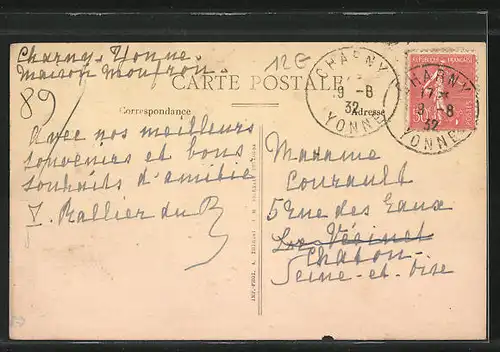 Charny. Yonne.
Maison Moufron.
12E
89
CARTE POSTALE
Correspondance
Adresse
CHARNY
9 - 8
32
YONNE
REPUBLIQUE FRANÇAISE
50
CHARNY
17
9 - 8
32
YONNE
avec nos meilleurs
souvenirs et bons
souhaits d'amitié
V. Rallier du
Madame
Courault
5 Rue des Eaux
Le Vésinet
Chatou-
Seine-et-Oise